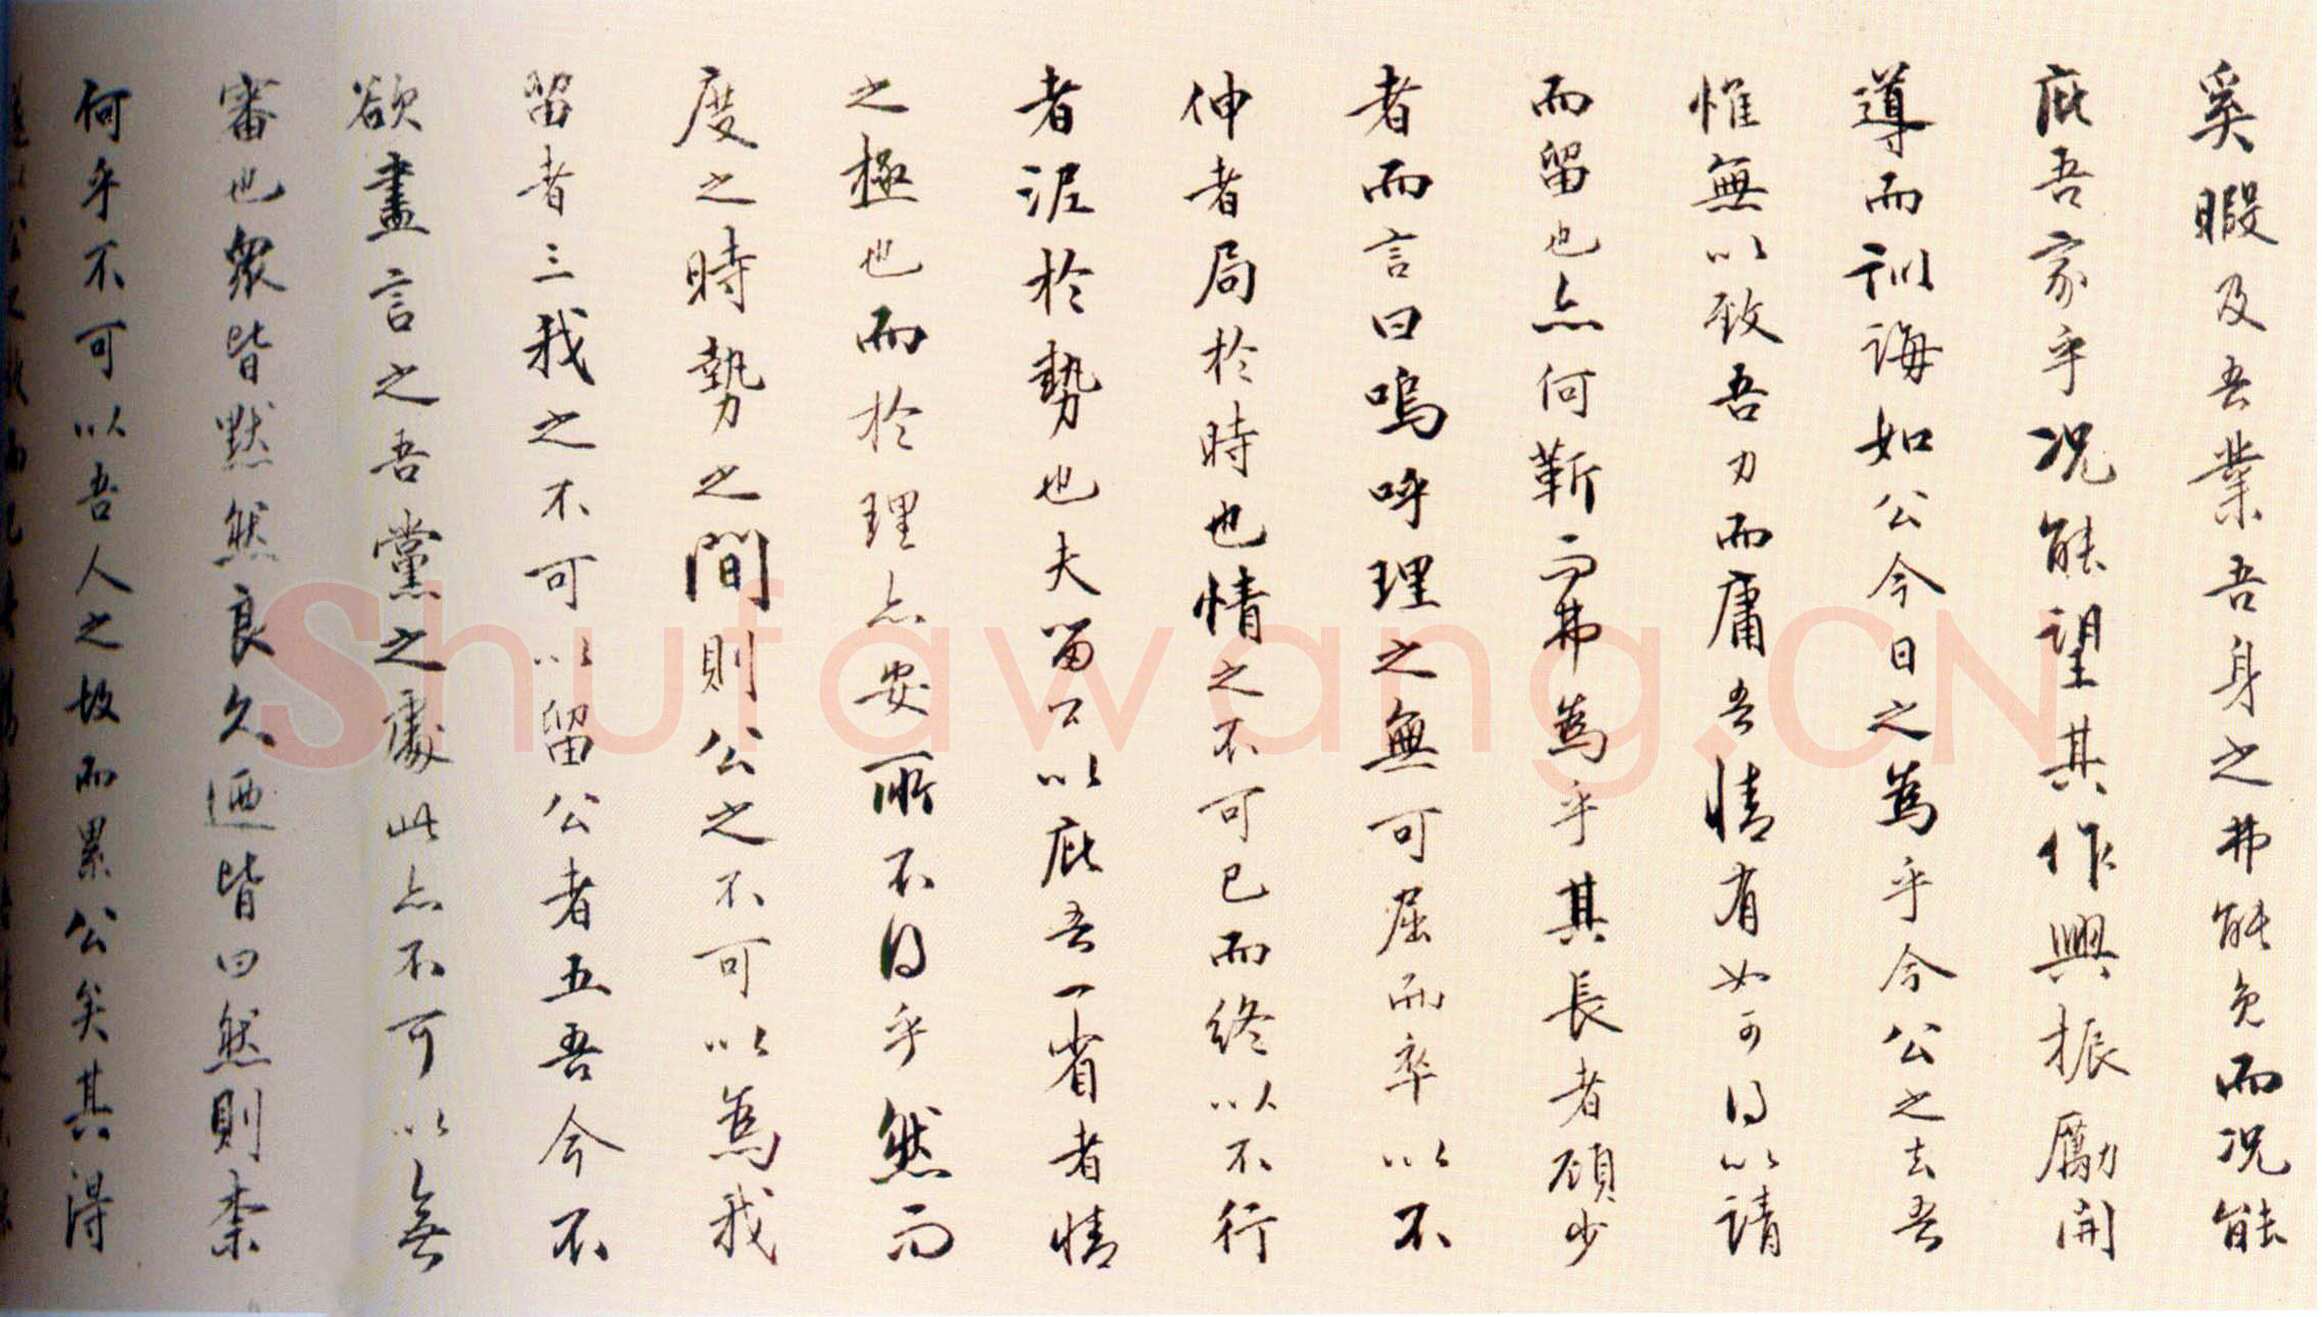 奚暇及吾業吾身之弗能免而况能
庇吾家乎况能望其作興振勵開
導而訓誨如公今日之為乎今公之去吾
惟無以致吾力而庸吾情有如可得以請
而留也亦何靳而弗為乎其長者顧少
者而言曰嗚呼理之無可屈而卒以不
伸者局於時也情之不可已而終以不行
者泥於勢也夫留公以庇吾一省者情
之極也而於理亦安所不得乎然而
度之時勢之間則公之不可以為我
留者三我之不可以留公者五吾今不
欲盡言之吾黨之處此亦不可以無
審也眾皆默然良久迺皆曰然則柰
何乎不可以吾人之故而累公矣其得
Shufawang.CN